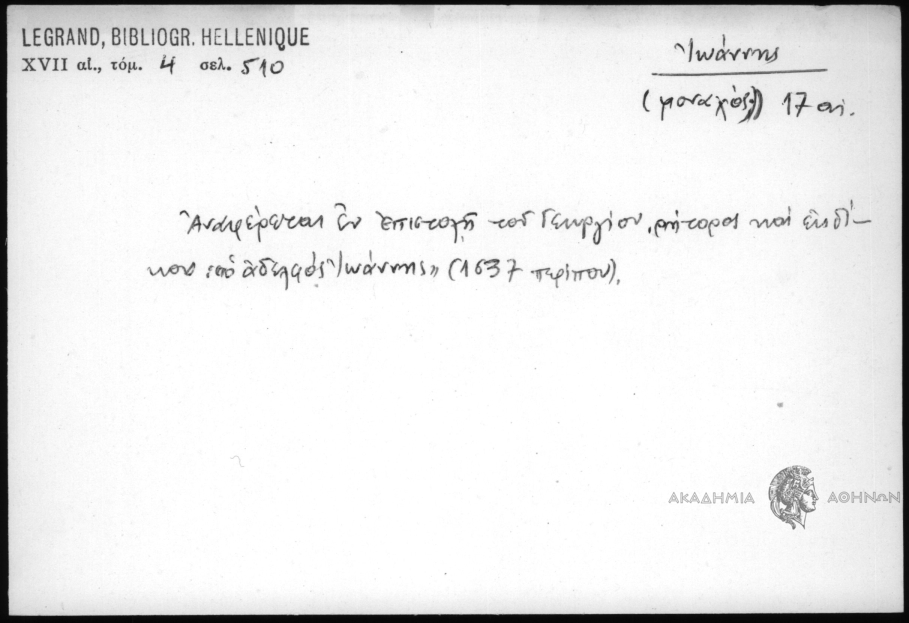 LEGRAND, BIBLIOGR. HELLENIQUE
XVII αἰ., τόμ. 4 σελ. 510
Ἰωάννης
(μοναχός;) 17 αι.
Ἀναφέρεται ἐν ἐπιστολῇ τοῦ Γεωργίου, ρήτορος καὶ ἐκδί-
κου «ὁ ἀδελφὸς Ἰωάννης» (1637 περίπου).
ΑΚΑΔΗΜΙΑ ΑΘΗΝΩΝ